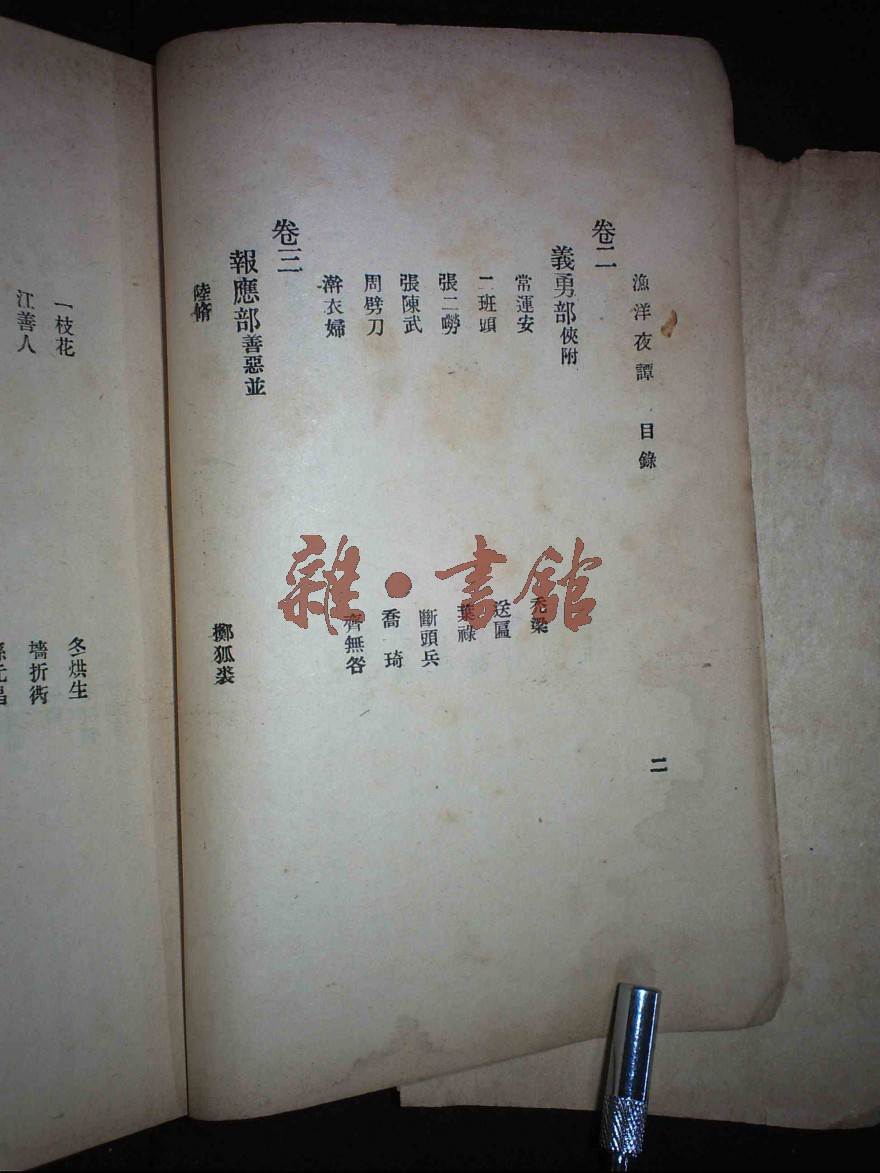 漁洋夜譚 目錄
二
卷二
義勇部俠附
常運安
禿梁
二班頭
送匾
張二嘮
葉祿
張陳武
斷頭兵
周劈刀
喬琦
澣衣婦
齊無咎
卷三
報應部善惡並
陸脩
擲狐裘
一枝花
冬烘生
江善人
墻折衖
雜·書館